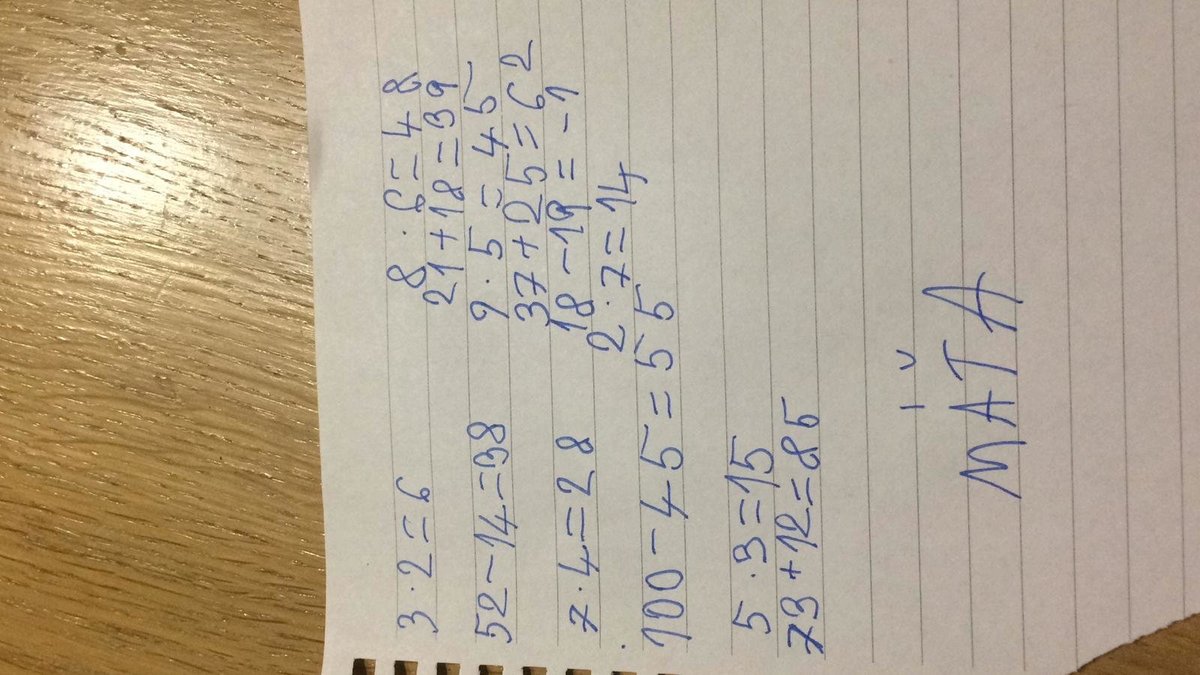 3·2=6
8·6=48
21+18=39
52-14=38
9·5=45
37+25=62
7·4=28
18-19=-1
2·7=14
100-45=55
5·3=15
73+12=85
MĀTĂ